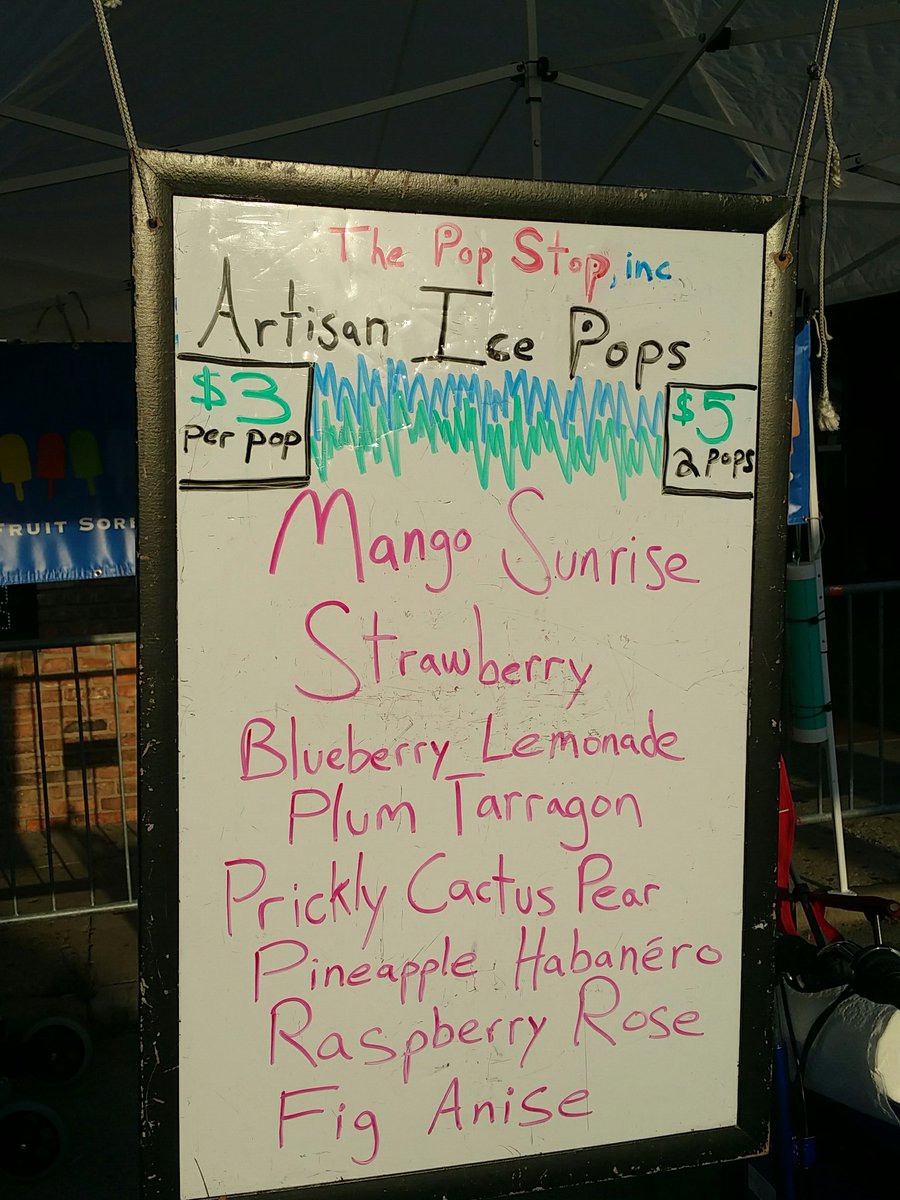 The Pop Stop, inc
Artisan Ice Pops
$3
per pop
$5
2 pops
FRUIT SORB
Mango Sunrise
Strawberry
Blueberry Lemonade
Plum Tarragon
Prickly Cactus Pear
Pineapple Habanéro
Raspberry Rose
Fig Anise